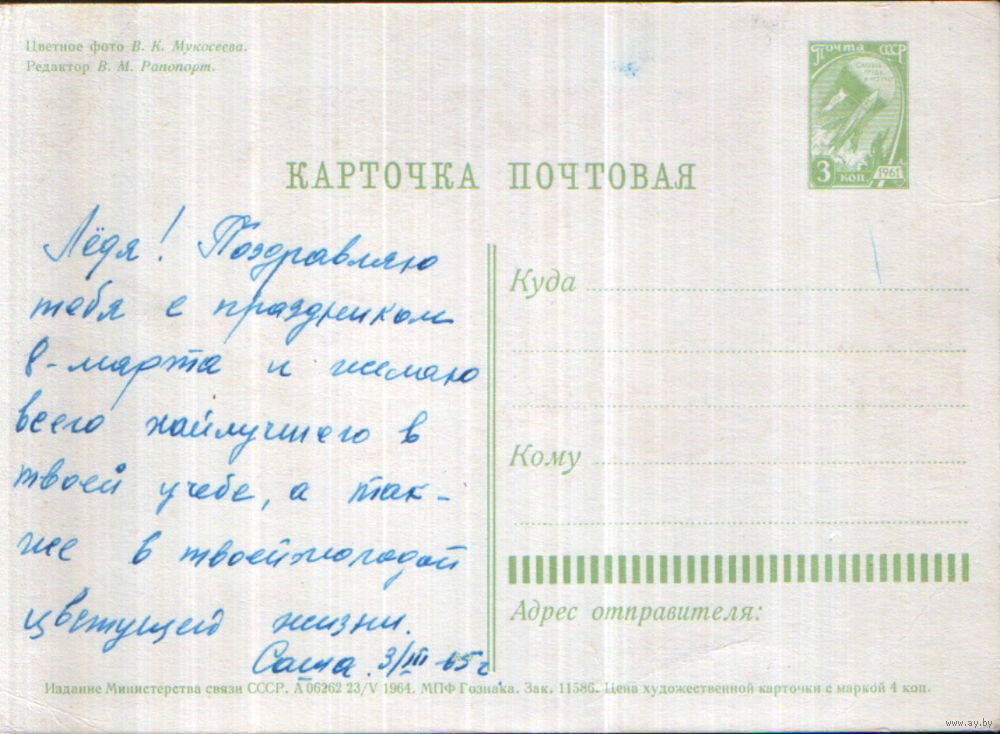 Цветное фото В. К. Мукосеева.
Редактор В. М. Рапопорт.
Почта СССР
3 коп. 1961
КАРТОЧКА ПОЧТОВАЯ
Лёдя! Поздравляю
тебя с праздником
8-марта и желаю
всего найлучшего в
твоей учебе, а так-
же в твоей молодой
цветущей жизни.
Саша. 3/III-65г.
Куда
Кому
Адрес отправителя:
Издание Министерства связи СССР. А 06262 23/V 1964. МПФ Гознака. Зак. 11586. Цена художественной карточки с маркой 4 коп.
www.ay.by